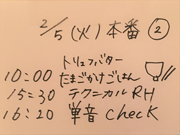 2/5(火)本番②
トリュフバター
10:00 たまごかけごはん
15:30 テクニカルRH
16:20 単音check